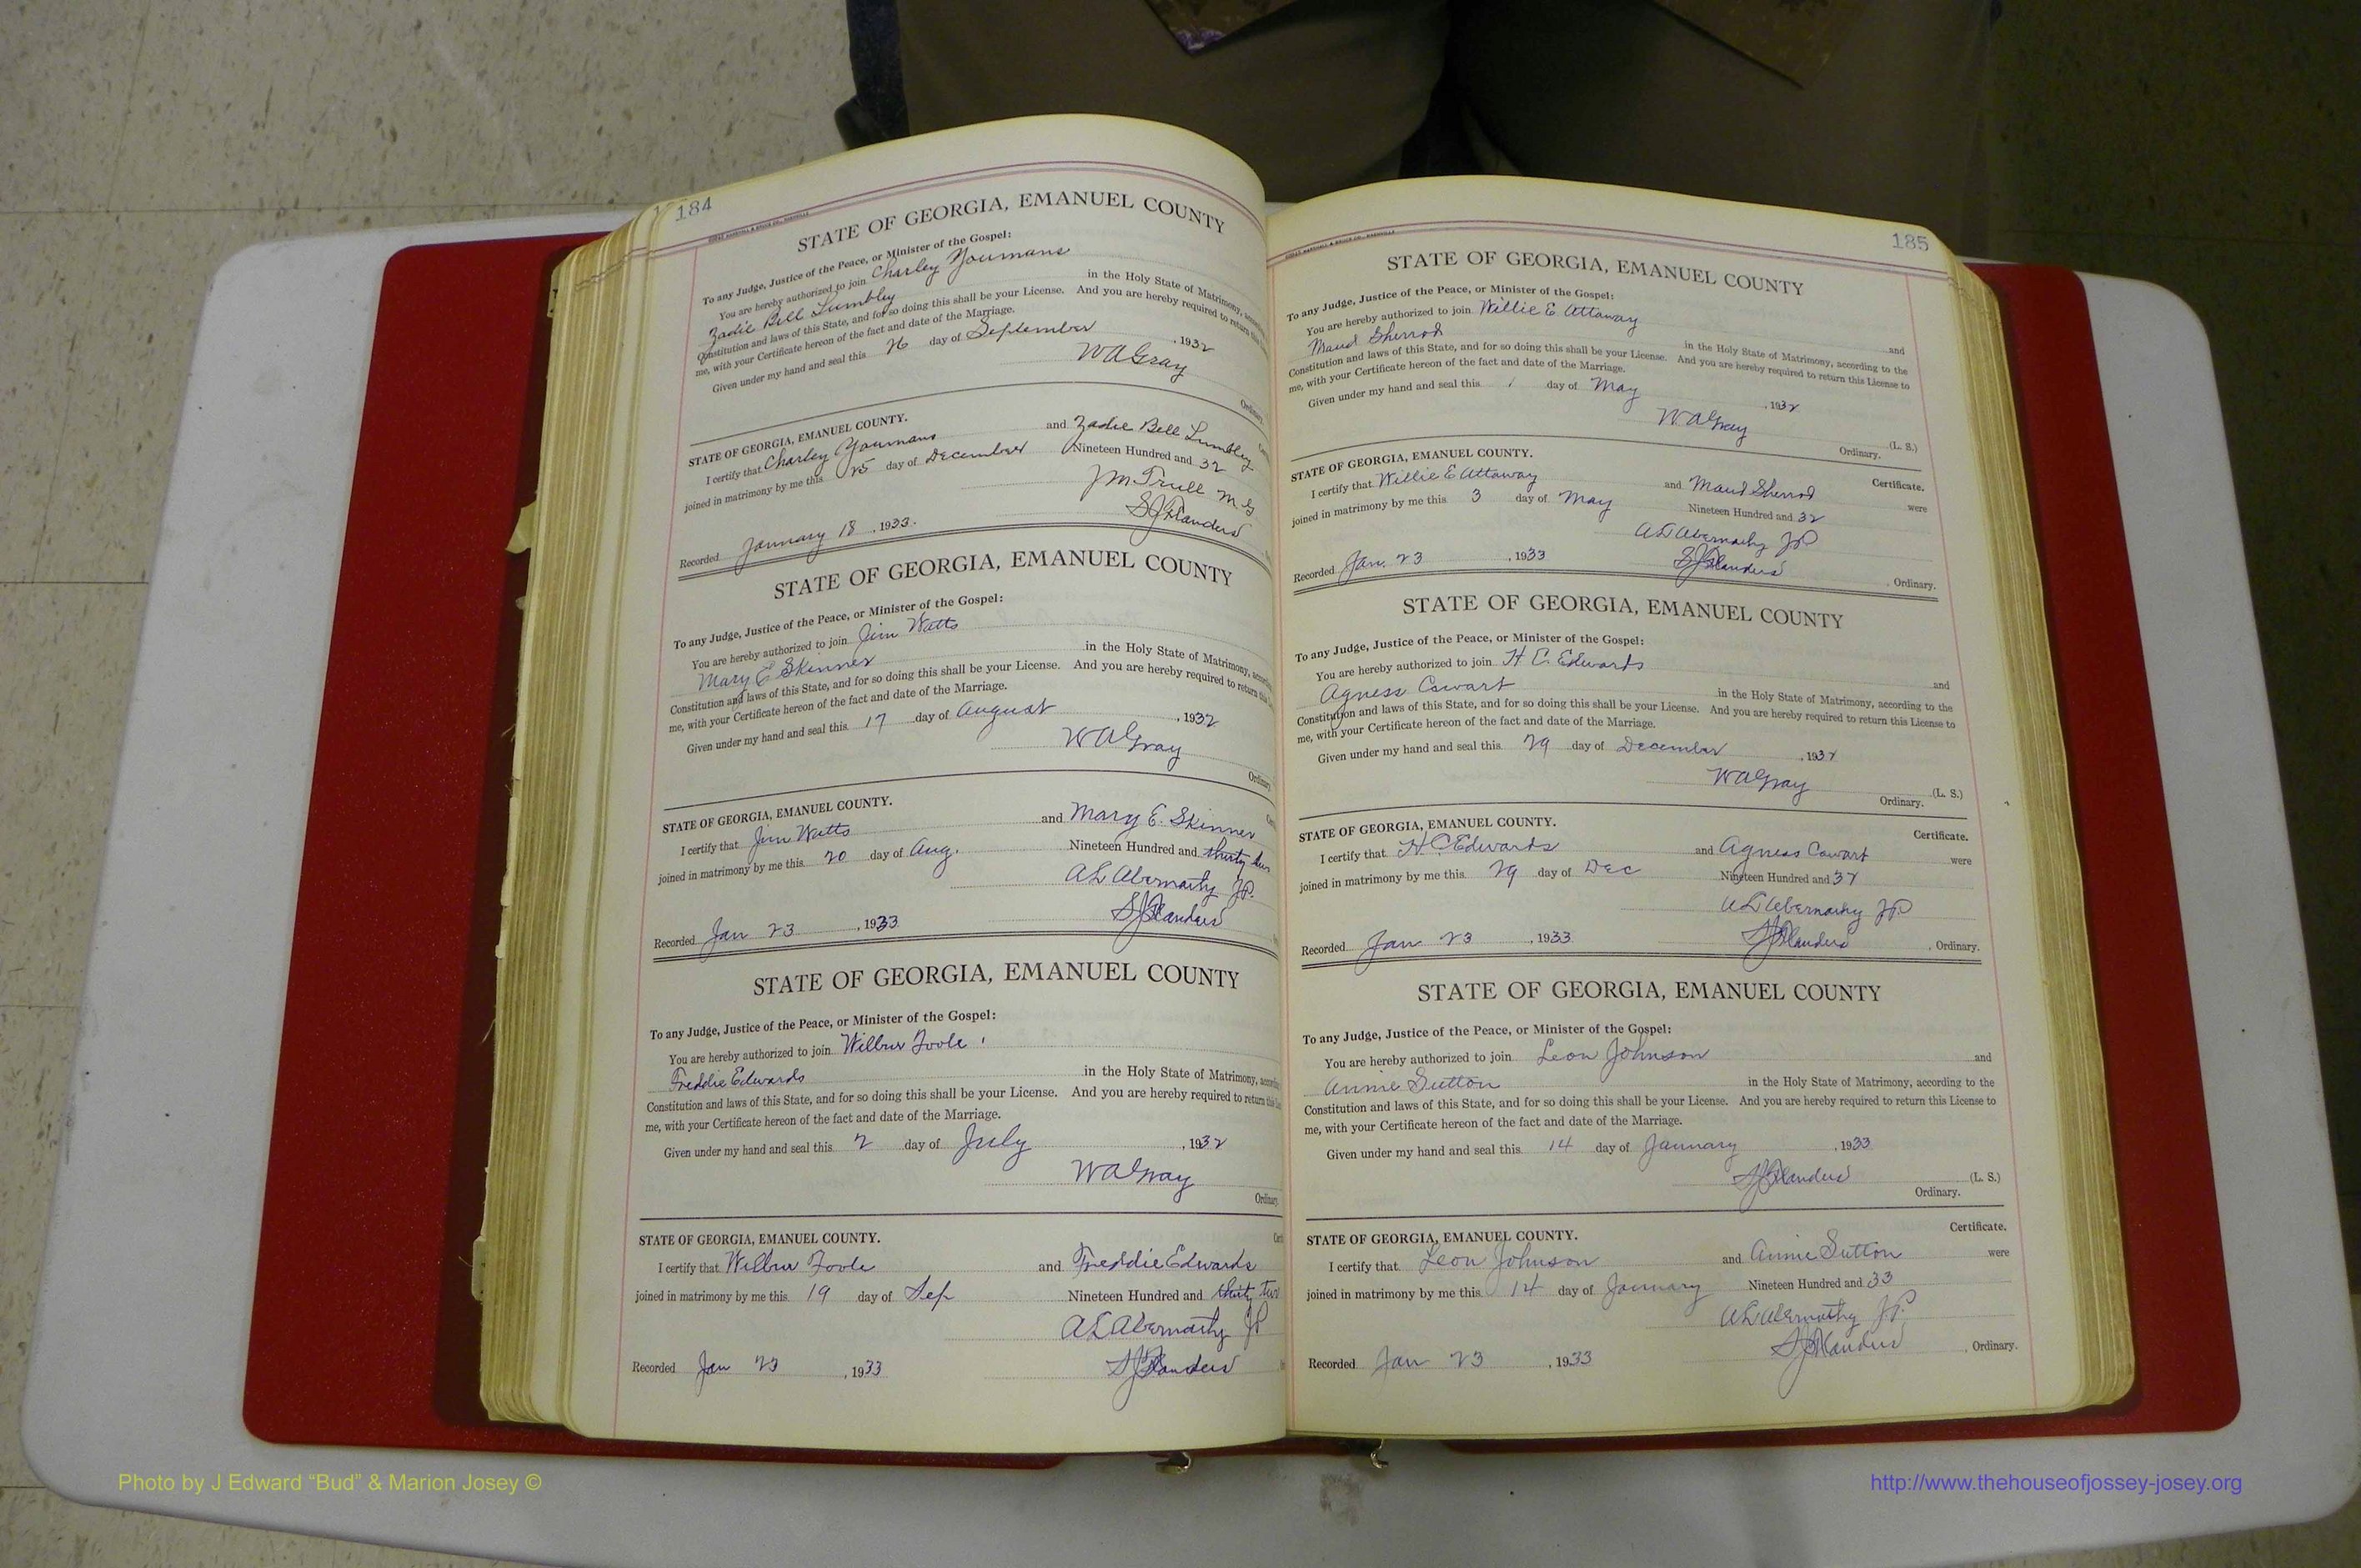 184
STATE OF GEORGIA, EMANUEL COUNTY
To any Judge, Justice of the Peace, or Minister of the Gospel:
You are hereby authorized to join Charley Youmans
Zadie Bell Lumbley in the Holy State of Matrimony,
Constitution and laws of this State, and for so doing this shall be your License. And you are hereby required to return
me, with your Certificate hereon of the fact and date of the Marriage.
Given under my hand and seal this 26 day of September, 1932
W A Gray
Ordinary.
STATE OF GEORGIA, EMANUEL COUNTY.
I certify that Charley Youmans and Zadie Bell Lumbley
joined in matrimony by me this 25 day of December Nineteen Hundred and 32
J M Trull M G
Recorded January 18, 1933. S J Flanders
STATE OF GEORGIA, EMANUEL COUNTY
To any Judge, Justice of the Peace, or Minister of the Gospel:
You are hereby authorized to join Jim Watts
Mary E Skinner in the Holy State of Matrimony,
Constitution and laws of this State, and for so doing this shall be your License. And you are hereby required to return
me, with your Certificate hereon of the fact and date of the Marriage.
Given under my hand and seal this 17 day of August, 1932
W A Gray
Ordinary
STATE OF GEORGIA, EMANUEL COUNTY.
I certify that Jim Watts and Mary E. Skinner
joined in matrimony by me this 20 day of Aug. Nineteen Hundred and thirty two
A L Abernathy J.P.
Recorded Jan 23, 1933 S J Flanders
STATE OF GEORGIA, EMANUEL COUNTY
To any Judge, Justice of the Peace, or Minister of the Gospel:
You are hereby authorized to join Wilbur Foole
Freddie Edwards in the Holy State of Matrimony,
Constitution and laws of this State, and for so doing this shall be your License. And you are hereby required to return
me, with your Certificate hereon of the fact and date of the Marriage.
Given under my hand and seal this 2 day of July, 1932
W A Gray
Ordinary.
STATE OF GEORGIA, EMANUEL COUNTY.
I certify that Wilbur Foole and Freddie Edwards
joined in matrimony by me this 19 day of Sep Nineteen Hundred and thirty two
A L Abernathy J P
Recorded Jan 23, 1933 S J Flanders
185
STATE OF GEORGIA, EMANUEL COUNTY
To any Judge, Justice of the Peace, or Minister of the Gospel:
You are hereby authorized to join Willie E Attaway and
Maud Sherrod in the Holy State of Matrimony, according to the
Constitution and laws of this State, and for so doing this shall be your License. And you are hereby required to return this License to
me, with your Certificate hereon of the fact and date of the Marriage.
Given under my hand and seal this 1 day of May, 1932
W A Gray (L. S.)
Ordinary.
STATE OF GEORGIA, EMANUEL COUNTY. Certificate.
I certify that Willie E Attaway and Maud Sherrod were
joined in matrimony by me this 3 day of May Nineteen Hundred and 32
A L Abernathy J P
Recorded Jan. 23, 1933 S J Flanders, Ordinary.
STATE OF GEORGIA, EMANUEL COUNTY
To any Judge, Justice of the Peace, or Minister of the Gospel:
You are hereby authorized to join H C. Edwards and
Agness Cowart in the Holy State of Matrimony, according to the
Constitution and laws of this State, and for so doing this shall be your License. And you are hereby required to return this License to
me, with your Certificate hereon of the fact and date of the Marriage.
Given under my hand and seal this 29 day of December, 1932
W A Gray (L. S.)
Ordinary.
STATE OF GEORGIA, EMANUEL COUNTY. Certificate.
I certify that H C Edwards and Agness Cowart were
joined in matrimony by me this 29 day of Dec Nineteen Hundred and 32
A L Abernathy J P
Recorded Jan 23, 1933 S J Flanders, Ordinary.
STATE OF GEORGIA, EMANUEL COUNTY
To any Judge, Justice of the Peace, or Minister of the Gospel:
You are hereby authorized to join Leon Johnson and
Annie Sutton in the Holy State of Matrimony, according to the
Constitution and laws of this State, and for so doing this shall be your License. And you are hereby required to return this License to
me, with your Certificate hereon of the fact and date of the Marriage.
Given under my hand and seal this 14 day of January, 1933
S J Flanders (L. S.)
Ordinary.
STATE OF GEORGIA, EMANUEL COUNTY. Certificate.
I certify that Leon Johnson and Annie Sutton were
joined in matrimony by me this 14 day of January Nineteen Hundred and 33
A L Abernathy J.P.
Recorded Jan 23, 1933 S J Flanders, Ordinary.
Photo by J Edward “Bud” & Marion Josey ©
http://www.thehouseofjossey-josey.org